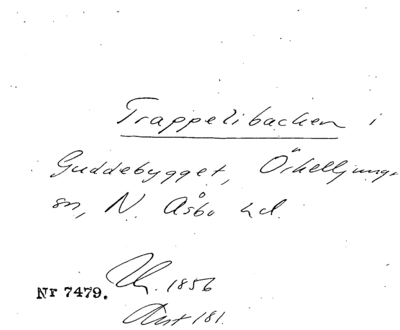 Trappelibacken i
Guddebygget, Örkelljunga
sn, N. Åsbo hd.
Nr 7479. Uh. 1856
Ant 181.